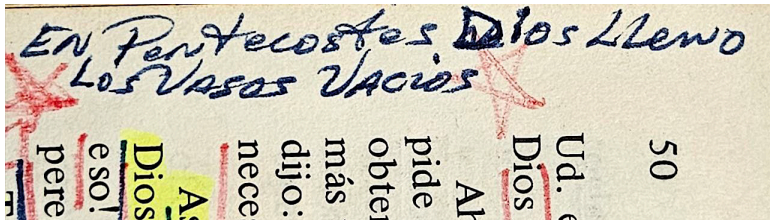 EN Pentecostes Dios LLeno
Los Vasos Vacios
50
Ud.
Dios
Ah
pide
más
dijo:
nece
As
Dios
eso!
pere